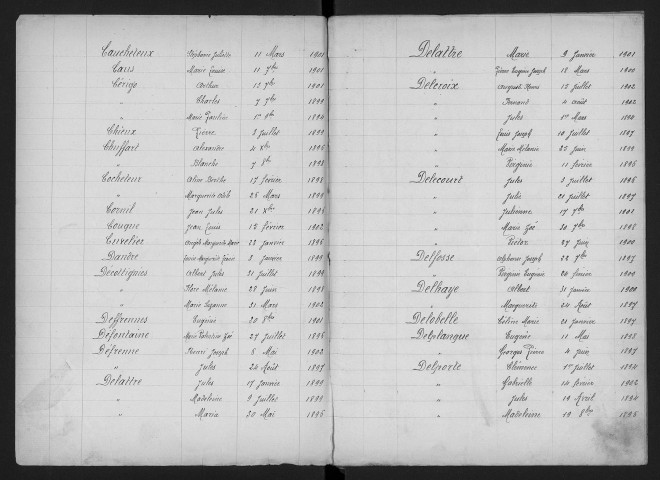 Caucheteux Stéphanie Juliette 11 Mars 1901
Caus Marie Louise 11 7bre 1901
Cérigo Arthur 13 7bre 1901
" Charles 7 7bre 1899
" Marie Pauline 1er 9bre 1894
Chieux Pierre 2 Juillet 1899
Chuffart Alexandre 4 Xbre 1896
" Blanche 7 8bre 1898
Cocheteux Aline 17 février 1898
" Marguerite 26 Mars 1898
Cornil Jean Jules 21 Xbre 1896
Cougne Jean Louis 12 février 1902
Cuvelier Joseph Marguerite 22 janvier 1896
Dandre Louise Marguerite 2 Janvier 1899
Décottignies Albert Jules 21 Juillet 1899
" Flore Mélanie 28 Juin 1898
" Marie Suzanne 31 Mars 1902
Deffrennes Eugénie 20 8bre 1901
Defontaine Marie Catherine Zoé 27 Juillet 1896
Défrenne Henri Joseph 8 Mai 1902
" Jules 24 Août 1897
Delattre Jules 17 Janvier 1899
" Madeleine 9 Juillet 1899
" Maria 20 Mai 1896
Delattre Marie 9 Janvier 1901
" Pierre Joseph 18 Mars 1900
Delcroix August Henri 13 Juillet 1902
" Fernand 4 août 1902
" Jules 1er Mars 1890
" Louis Joseph 10 Juillet 1897
" Marie Mélanie 25 Juin 1899
" Virginie 11 février 1896
Delecourt Jules 3 Juillet 1896
" Julie 21 Juillet 1897
" Julienne 17 7bre 1901
" Marie Zoé 30 7bre 1898
" Victor 27 Juin 1900
Delfosse Alphonse Joseph 22 7bre 1897
" Virginie Eugénie 20 février 1900
Delhaye Albert 31 janvier 1900
" Marguerite 24 Août 1897
Delobelle Céline Marie 21 Janvier 1897
Delplanque Eugénie 11 Mai 1898
" Georges Pierre 4 Juin 1897
Delporte Clémence 1er Juillet 1894
" Gabrielle 14 février 1902
" Jules 19 Avril 1894
" Madeleine 19 8bre 1896